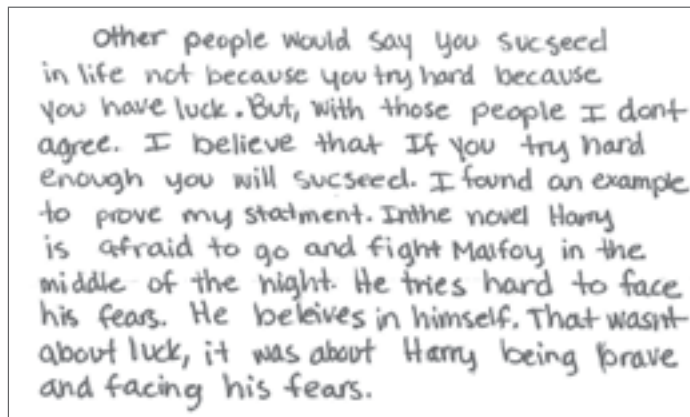 Other people would say you sucseed
in life not because you try hard because
you have luck. But, with those people I dont
agree. I believe that If you try hard
enough you will sucseed. I found an example
to prove my statment. Inthe novel Harry
is afraid to go and fight Malfoy in the
middle of the night. He tries hard to face
his fears. He beleives in himself. That wasnt
about luck, it was about Harry being brave
and facing his fears.